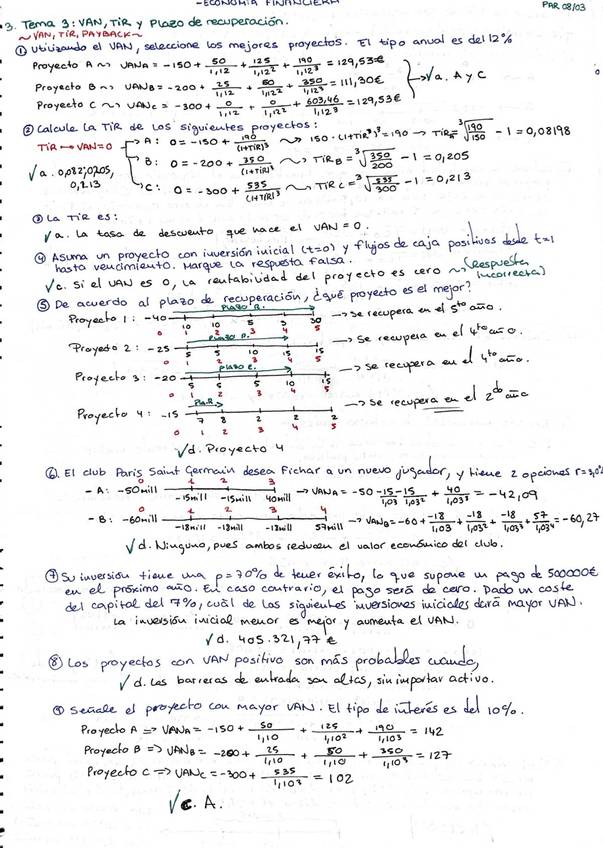 -ECONOMÍA FINANCIERA
PAR 08/03
3. Tema 3: VAN, TIR y Plazo de recuperación.
~VAN, TIR, PAYBACK~
① Utilizando el VAN, seleccione los mejores proyectos. El tipo anual es del 12%
Proyecto A ~> VANA = -150 + 50/1,12 + 125/1,12² + 190/1,12³ = 129,53€
Proyecto B ~> VANB = -200 + 25/1,12 + 50/1,12² + 350/1,12³ = 111,30€
Proyecto C ~> VANC = -300 + 0/1,12 + 0/1,12² + 603,46/1,12³ = 129,53€
√a. A y C
② Calcule la TIR de los siguientes proyectos:
TIR → VAN=0
A: 0 = -150 + 190/(1+TIR)³ ~> 150·(1+TIR)³ = 190 → TIRA = ³√190/150 - 1 = 0,08198
B: 0 = -200 + 350/(1+TIR)³ ~> TIRB = ³√350/200 - 1 = 0,205
C: 0 = -300 + 535/(1+TIR)³ ~> TIRC = ³√535/300 - 1 = 0,213
√a. 0,082; 0,205, 0,213
③ La TIR es:
√a. La tasa de descuento que hace el VAN = 0.
④ Asuma un proyecto con inversión inicial (t=0) y flujos de caja positivos desde t=1
hasta vencimiento. Marque la respuesta falsa.
√c. Si el VAN es 0, la rentabilidad del proyecto es cero ~> (Respuesta incorrecta)
⑤ De acuerdo al plazo de recuperación, ¿qué proyecto es el mejor?
Plazo R.
Proyecto 1: -40 10 10 5 3 30 → Se recupera en el 5to año.
0 1 2 3 4 5
Plazo R.
Proyecto 2: -25 5 5 10 15 15 → Se recupera en el 4to año.
0 1 2 3 4 5
Plazo R.
Proyecto 3: -20 5 5 5 10 15 → Se recupera en el 4to año.
0 1 2 3 4 5
Pla.R.
Proyecto 4: -15 7 8 2 2 2 → Se recupera en el 2do año
0 1 2 3 4 5
√d. Proyecto 4
⑥ El club Paris Saint Germain desea fichar a un nuevo jugador, y tiene 2 opciones r=3,0%
0 1 2 3
- A: -50mill -15mill -15mill 40mill → VANA = -50 -15/1,03 -15/1,03² + 40/1,03³ = -42,09
0 1 2 3 4
- B: -60mill -18mill -18mill -18mill 57mill → VANB = -60 + -18/1,03 + -18/1,03² + -18/1,03³ + 57/1,03⁴ = -60,27
√d. Ninguno, pues ambos reducen el valor económico del club.
⑦ Su inversión tiene una p=70% de tener éxito, lo que supone un pago de 500000€
en el próximo año. En caso contrario, el pago será de cero. Dado un coste
del capital del 7%, cuál de las siguientes inversiones iniciales dará mayor VAN.
La inversión inicial menor es mejor y aumenta el VAN.
√d. 405.321,77 €
⑧ Los proyectos con VAN positivo son más probables cuando,
√d. Las barreras de entrada son altas, sin importar activo.
⑨ Señale el proyecto con mayor VAN. El tipo de interés es del 10%.
Proyecto A => VANA = -150 + 50/1,10 + 125/1,10² + 190/1,10³ = 142
Proyecto B => VANB = -200 + 25/1,10 + 50/1,10 + 350/1,10³ = 127
Proyecto C => VANC = -300 + 535/1,10³ = 102
√c. A.